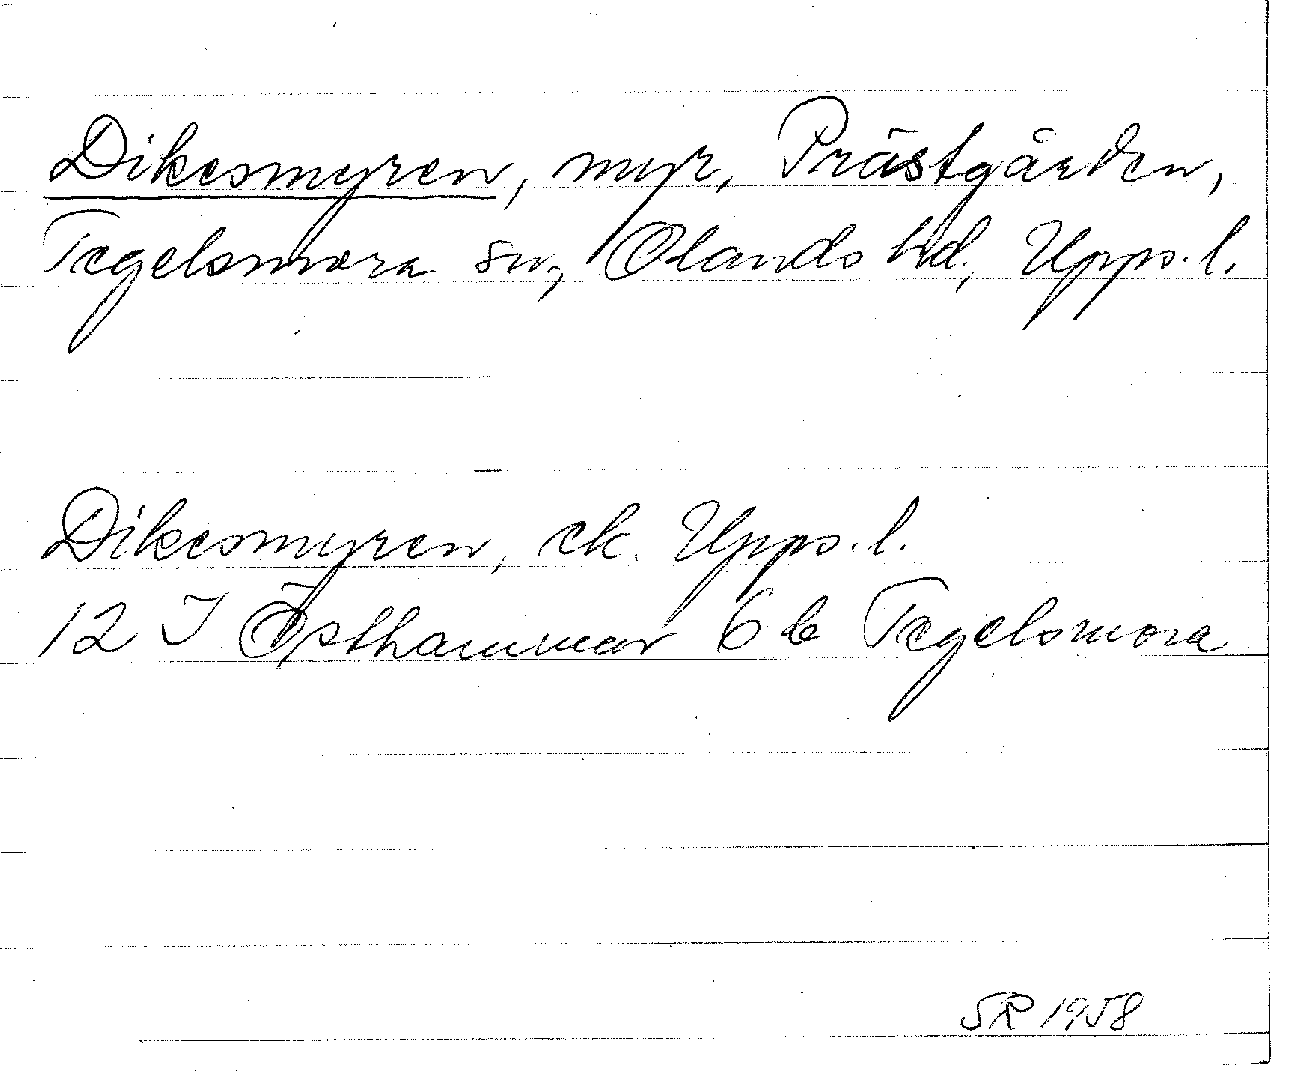 Dikesmyren, myr, Prästgården,
Tegelsmora sn, Olands hd, Upps. l.
Dikesmyren, ek. Upps. l.
12 I Östhammar 6 b Tegelsmora
SR 1958